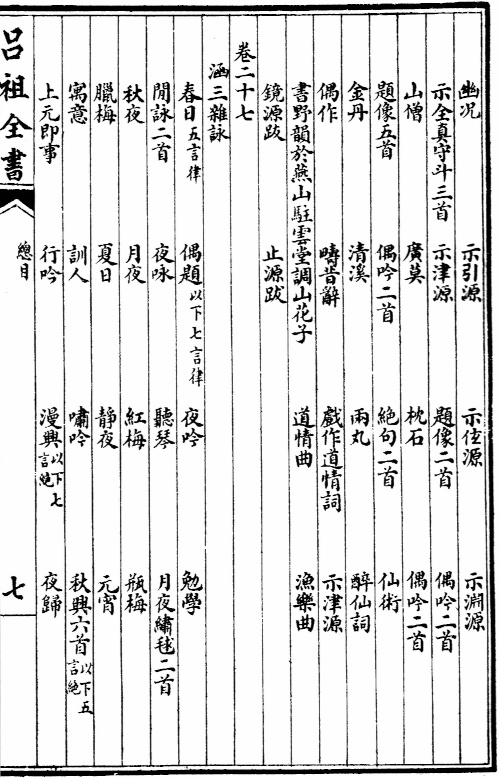 幽况　示引源　示位源　示淵源
示全真守斗三首　示津源　題像二首　偶吟二首
山僧　廣莫　枕石　偶吟二首
題像五首　偶吟二首　絕句二首　仙術
金丹　清溪　兩丸　醉仙詞
偶作　疇昔辭　戲作道情詞　示津源
書野韻於燕山駐雲堂調山花子　道情曲　漁樂曲
鏡源跋　止源跋
卷二十七
涵三雜詠
春日五言律　偶題以下七言律　夜吟　勉學
閒詠二首　夜咏　聽琴　月夜繡毬二首
秋夜　月夜　紅梅　瓶梅
臘梅　夏日　靜夜　元宵
寓意　訓人　嘯吟　秋興六首以下五言絕
上元即事　行吟　漫興以下七言絕　夜歸
呂祖全書　總目　七